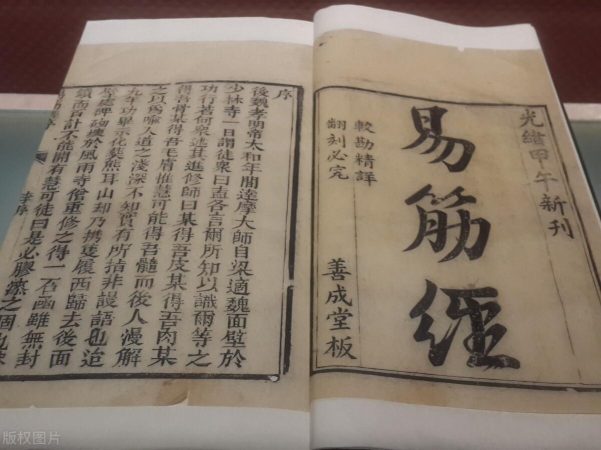 光緒甲午新刊
易筋經
較勘精詳
翻刻必究
善成堂板
序
後魏孝明帝太和年間達摩大師自梁適魏面壁於
少林寺一日謂徒衆曰盍各言爾所知以識爾等之
功行若何衆述其進修師曰某得吾皮某得吾肉某
得吾骨某得吾毛膚惟慧可能得吾髓而後人漫解
之以爲喻人道之淺深不知實有所指非謾語也迨
九年功畢示化葬熊耳山却乃携隻履西歸去後面
壁處碑砌壞於風雨寺僧重修之得一石函雖無封
鎖而百計不能開有慧可徒曰是必膠漆之
李序
版权图片